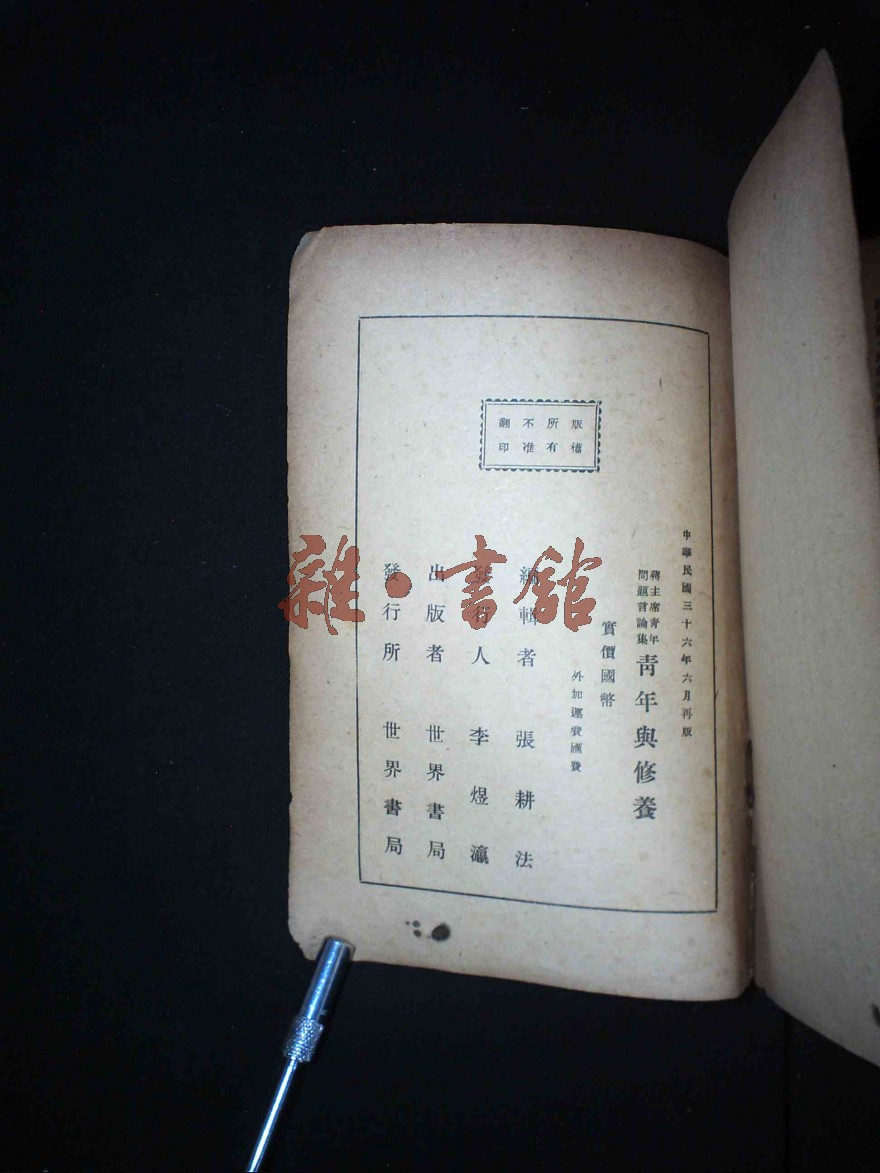 中華民國三十六年六月再版
蔣主席青年
問題言論集
青年與修養
實價國幣
外加運費匯費
編輯者 張耕法
發行人 李煜瀛
出版者 世界書局
發行所 世界書局
版權
所有
不准
翻印
雜·書館